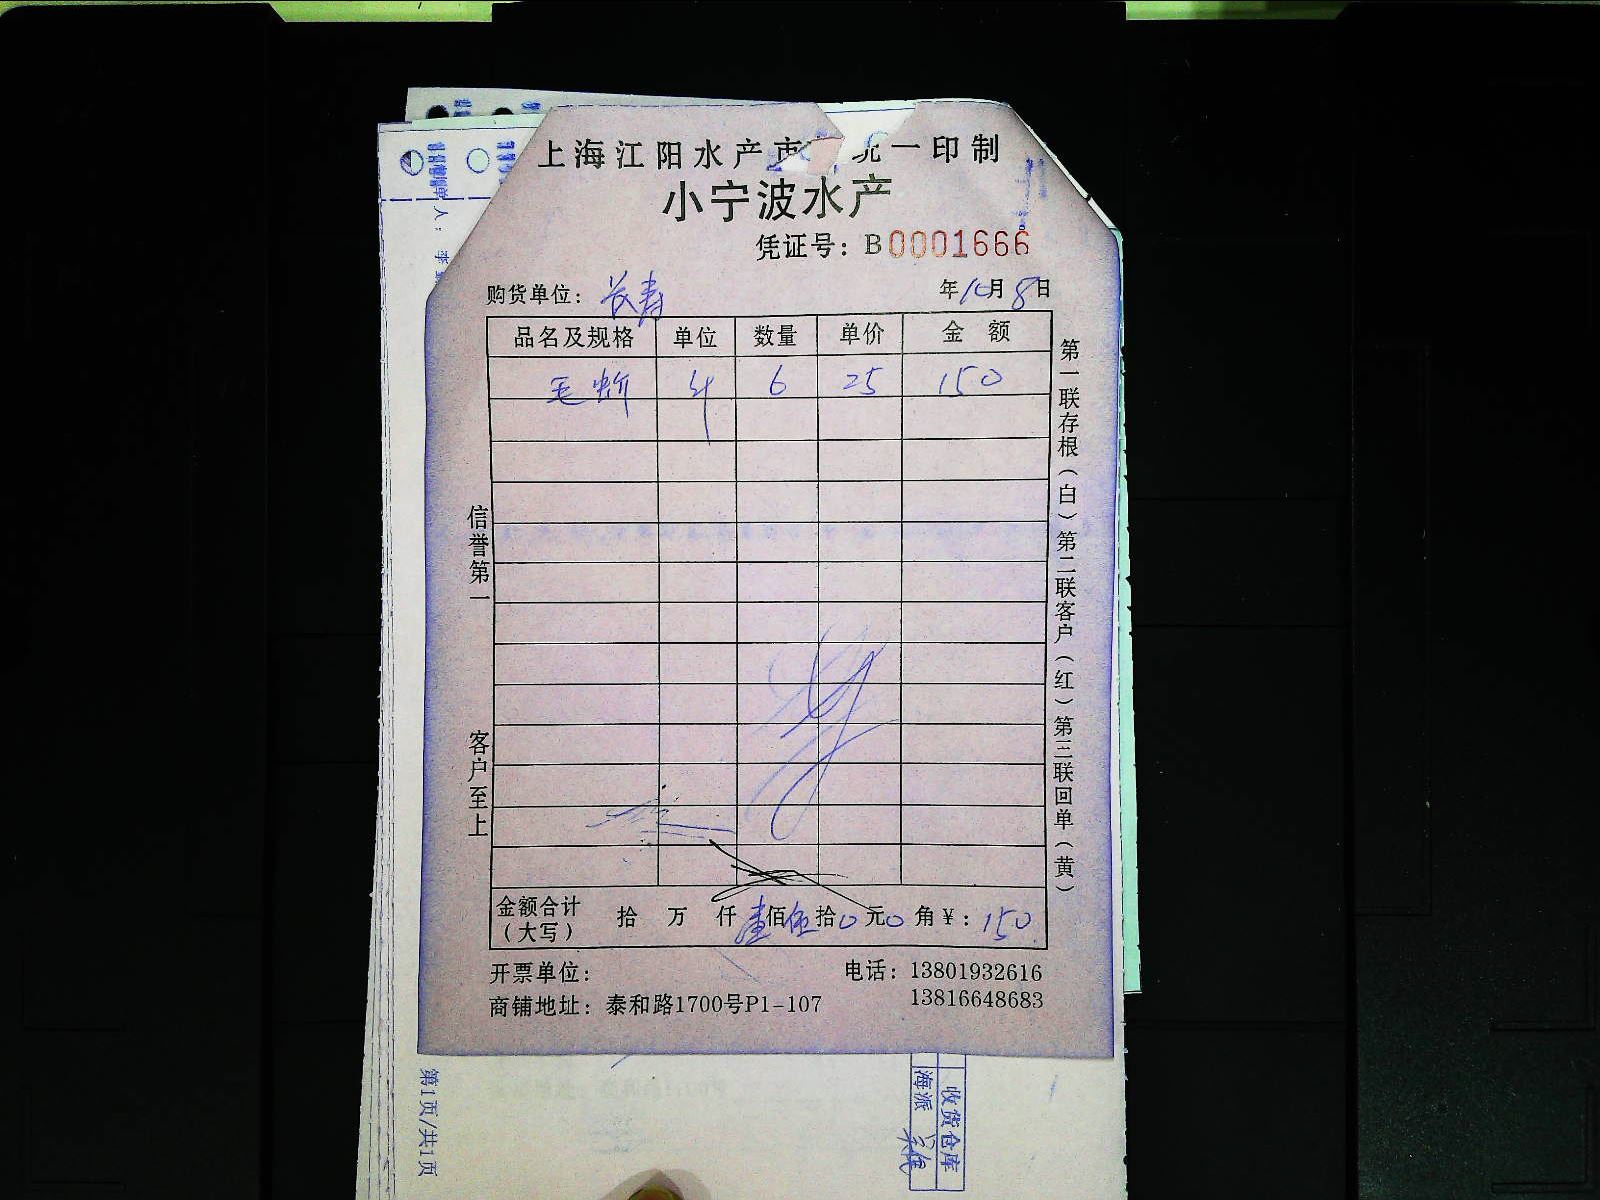 上海江阳水产市 统一印制
小宁波水产
凭证号：B0001666
购货单位：长寿 年10月8日
品名及规格 单位 数量 单价 金额
毛蚶 斤 6 25 150
信誉第一
客户至上
第一联存根（白）第二联客户（红）第三联回单（黄）
金额合计（大写） 拾 万 仟壹佰伍拾0元0角￥：150
开票单位： 电话：13801932616
13816648683
商铺地址：泰和路1700号P1-107
第1页/共1页
收货仓库
海派